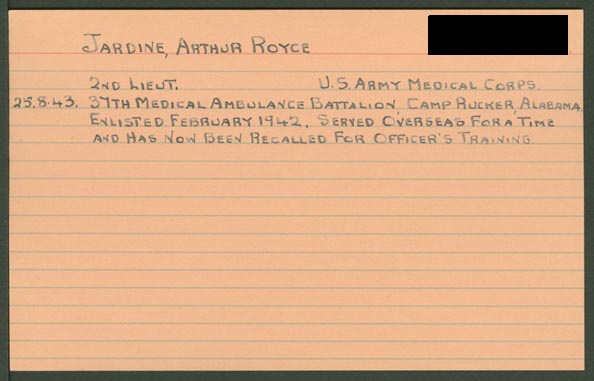 JARDINE, ARTHUR ROYCE
2ND LIEUT. U.S. ARMY MEDICAL CORPS.
25.8.43. 37TH MEDICAL AMBULANCE BATTALION CAMP RUCKER, ALABAMA.
ENLISTED FEBRUARY 1942. SERVED OVERSEAS FOR A TIME
AND HAS NOW BEEN RECALLED FOR OFFICER'S TRAINING.